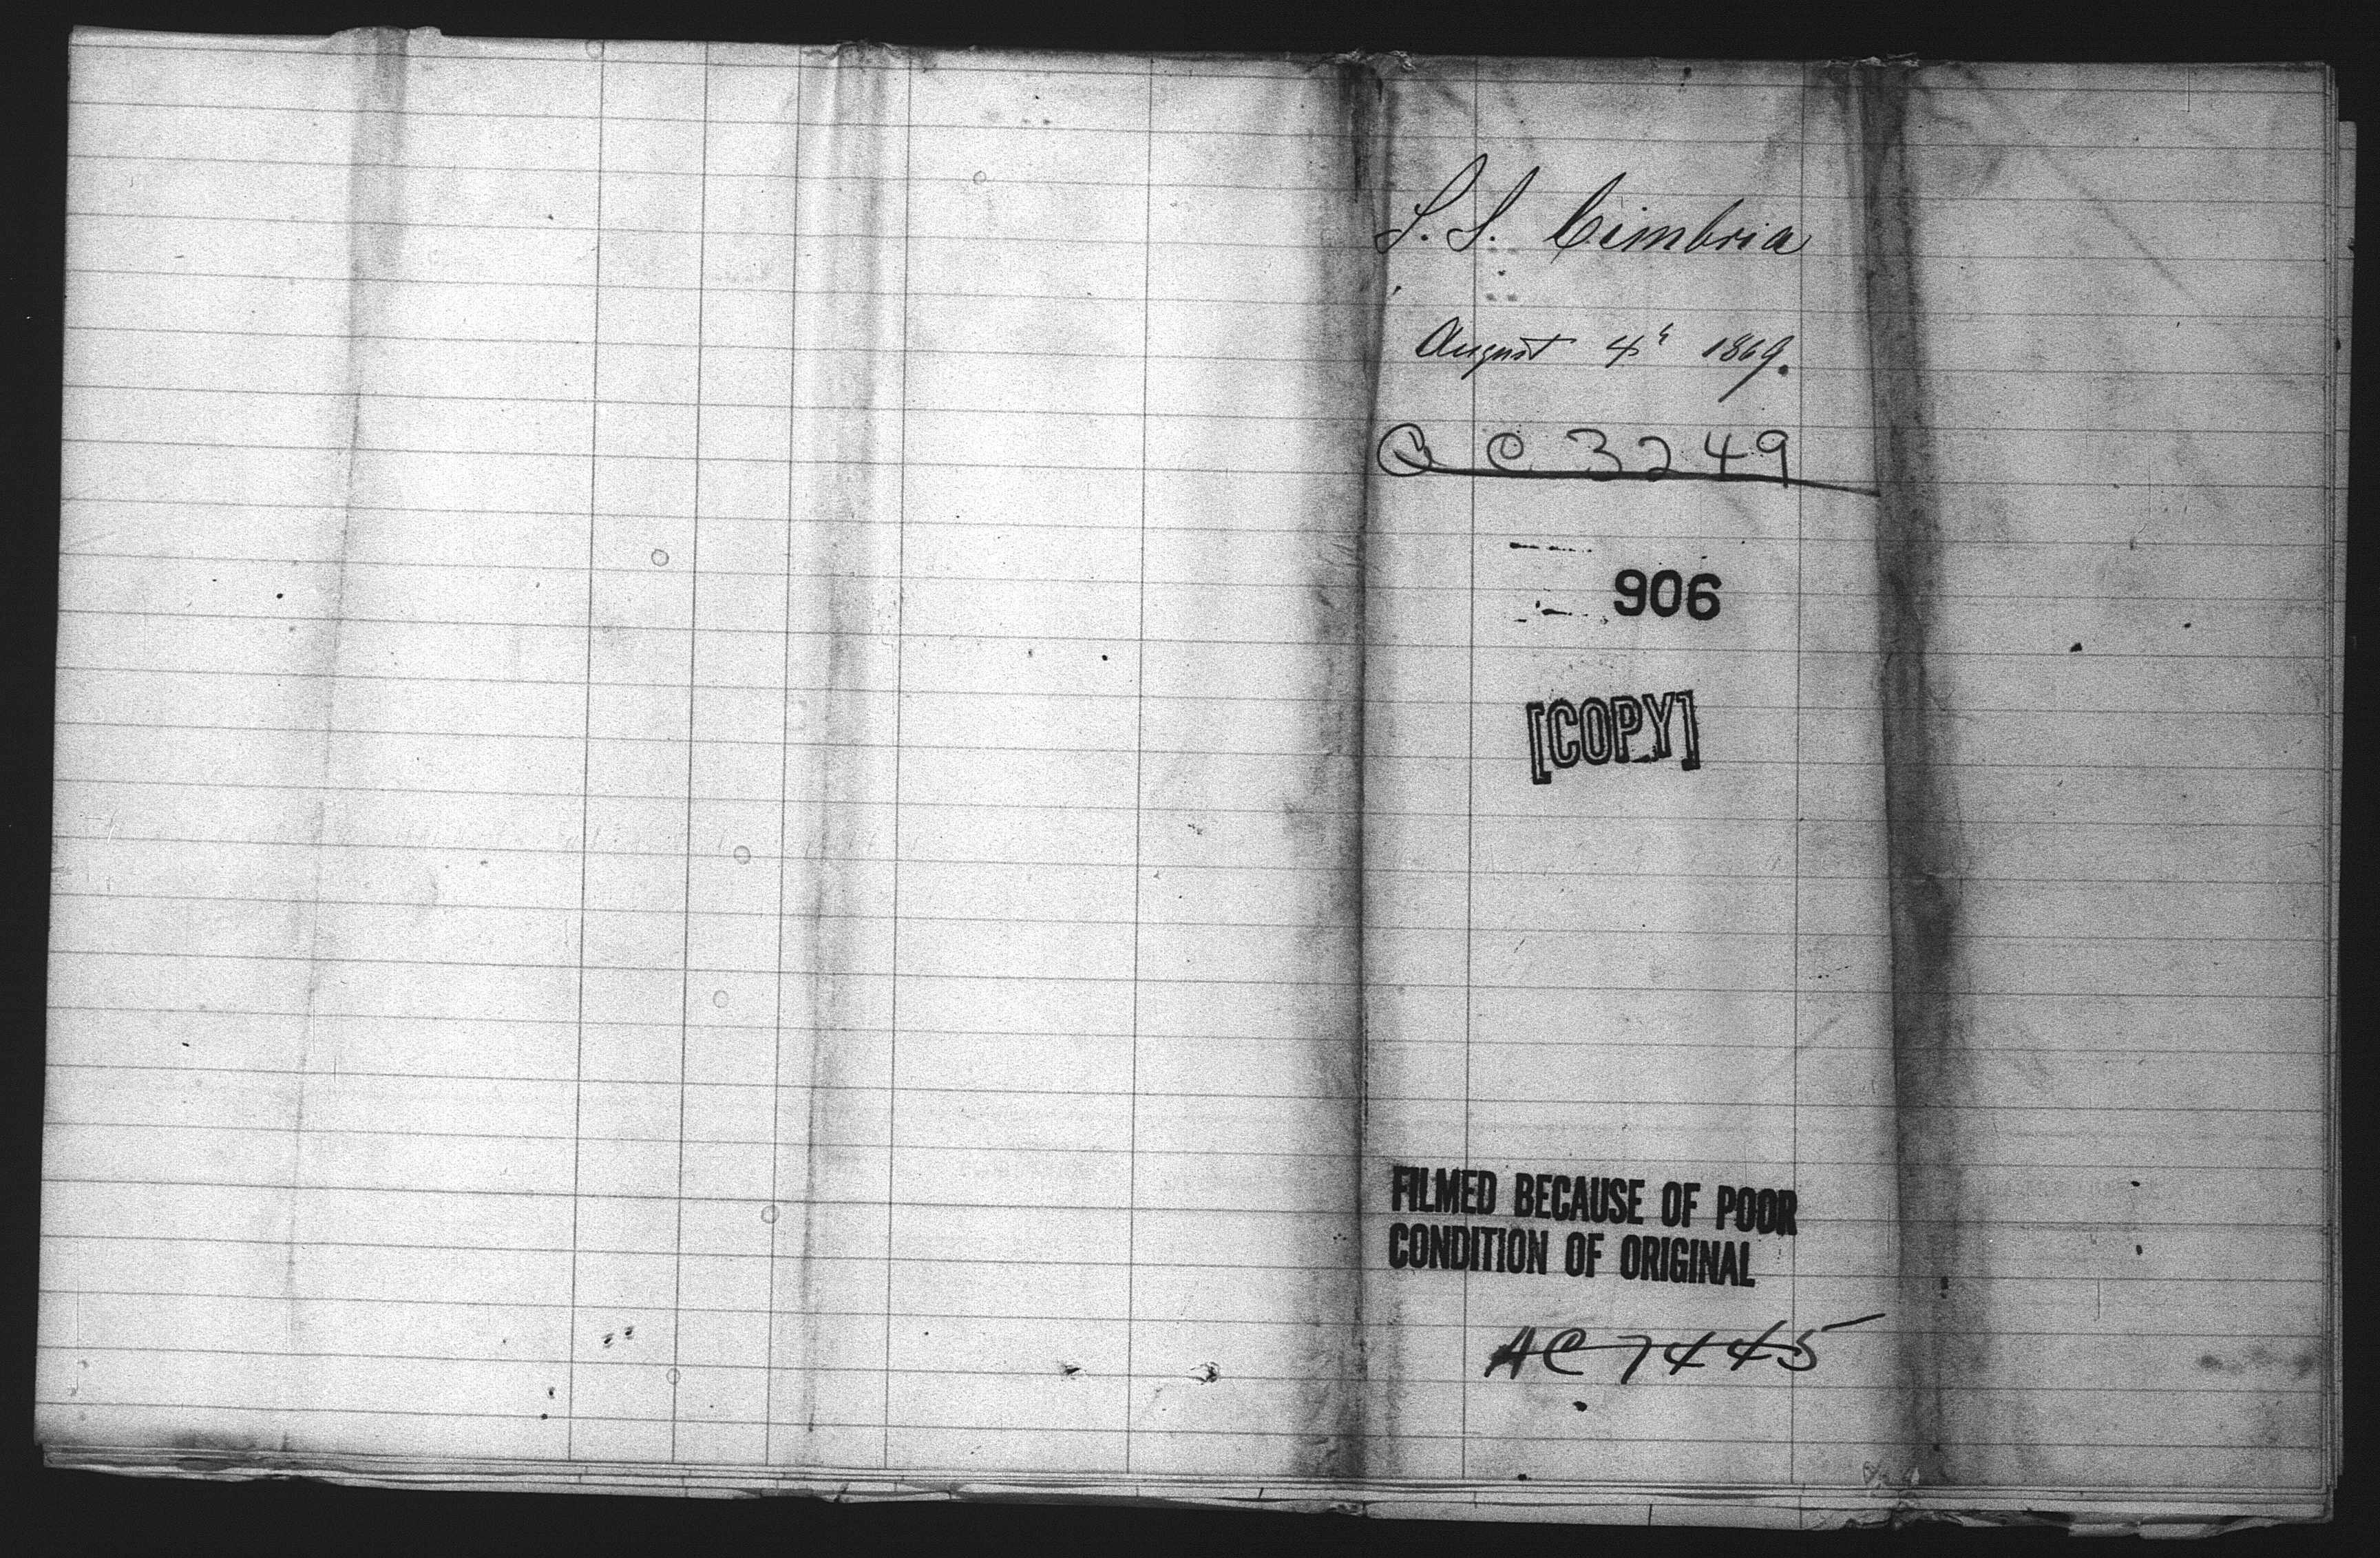 S. S. Cimbria
August 4th 1869.
Q C 3249
906
[COPY]
FILMED BECAUSE OF POOR
CONDITION OF ORIGINAL
AC 7445